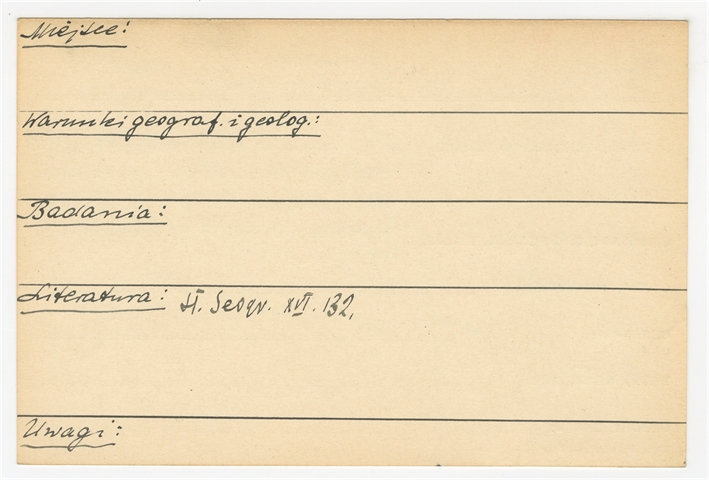 Miejsce:
Warunki geograf. i geolog.:
Badania:
Literatura: Sł. Geogr. XVI. 132,
Uwagi: